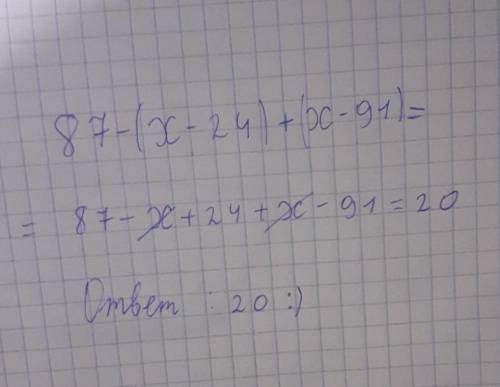 87-(x-24)+(x-91)=
= 87-x+24+x-91=20
Ответ : 20 :)